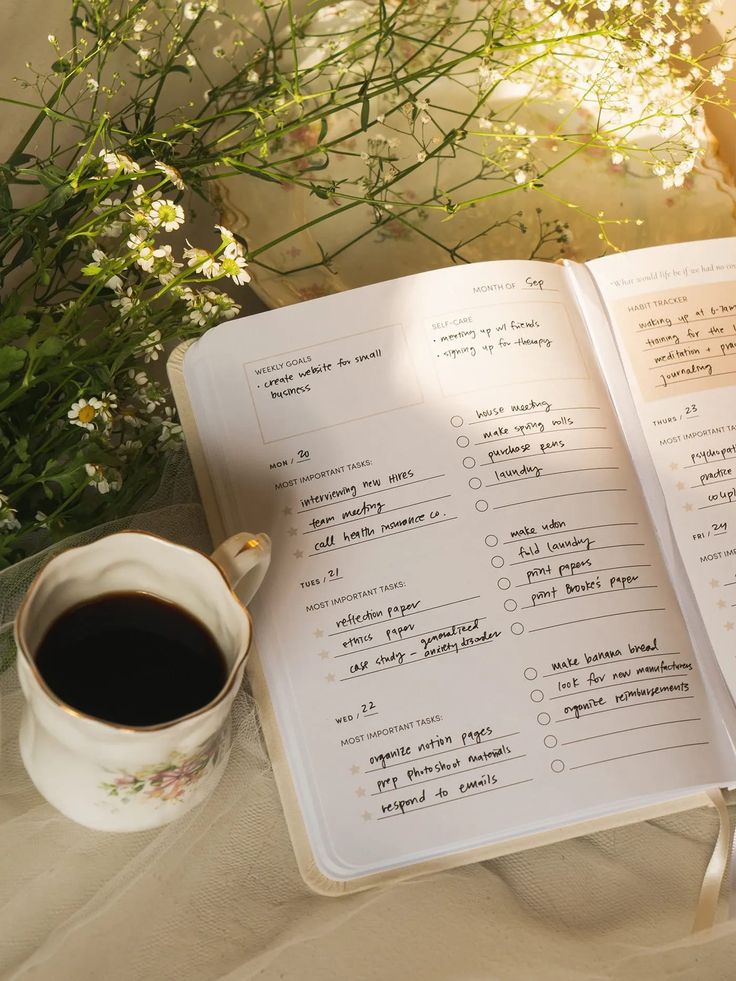 MONTH OF Sep
WEEKLY GOALS
• create website for small
business
SELF-CARE
• meeting up w/ friends
• signing up for therapy
MON / 20
MOST IMPORTANT TASKS:
interviewing new hires
team meeting
call health insurance co.
house meeting
make spring rolls
purchase pens
laundry
TUES / 21
MOST IMPORTANT TASKS:
reflection paper
ethics paper
case study - generalized
anxiety disorder
make udon
fold laundry
print papers
print Brooke's paper
WED / 22
MOST IMPORTANT TASKS:
organize notion pages
prep photoshoot materials
respond to emails
make banana bread
look for new manufacturers
organize reimbursements
"What would life be if we had no
HABIT TRACKER
waking up at 6-7am
training for the
meditation +
journaling
THURS / 23
MOST IMPORTANT
practice
FRI / 24
MOST